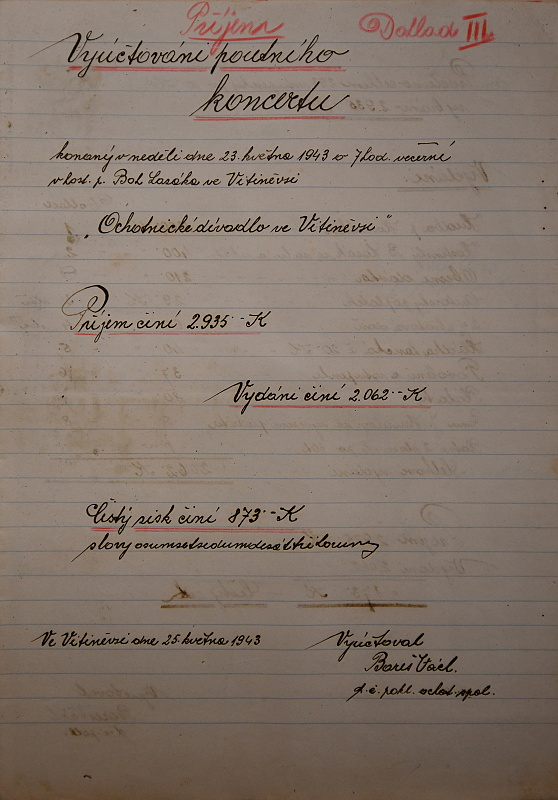 Příjem
Doklad III.
Vyúčtování poutního
koncertu
konaný v neděli dne 23. května 1943 o 7 hod. večerní
v host. p. Boh. Lasáka ve Vítiněvsi
„Ochotnické divadlo ve Vítiněvsi"
Příjem činí 2.935 -- K
Vydání činí 2.062 -- K
Čistý zisk činí 873 -- K
slovy osumsetsedumdesáttři koruny
Ve Vítiněvsi dne 25. května 1943
Vyúčtoval
Bareš Václ.
t. č. pokl. ochot. spol.